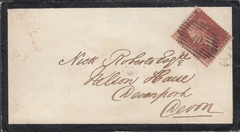 Nich Roberts Esqre
Nelson House
Devonport
Devon